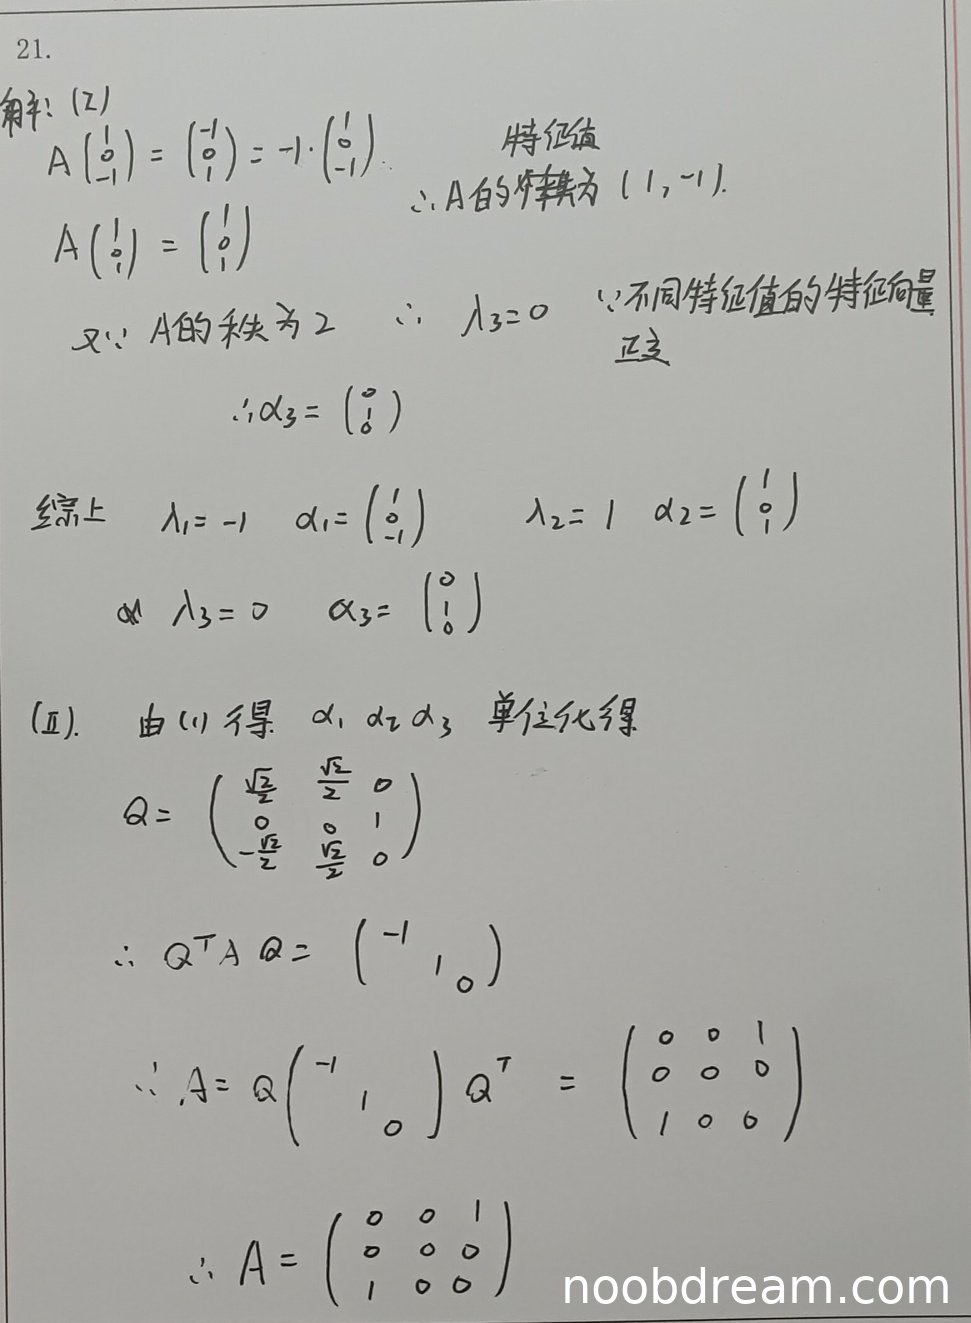 21.
解:(I)
A(1 0 -1) = (-1 0 1) = -1·(1 0 -1).
特征值
∴A的为(1,-1).
A(1 0 1) = (1 0 1)
又∵ A的秩为2 ∴ λ3=0 ∵不同特征值的特征向量
正交
∴α3=(0 1 0)
综上 λ1=-1 α1=(1 0 -1) λ2=1 α2=(1 0 1)
λ3=0 α3=(0 1 0)
(II). 由(1)得 α1 α2 α3 单位化得
Q= (√2/2 √2/2 0
0 0 1
-√2/2 √2/2 0)
∴ Q^T A Q = (-1 1 0)
∵ A= Q(-1 1 0) Q^T = (0 0 1
0 0 0
1 0 0)
∴ A= (0 0 1
0 0 0
1 0 0)
noobdream.com